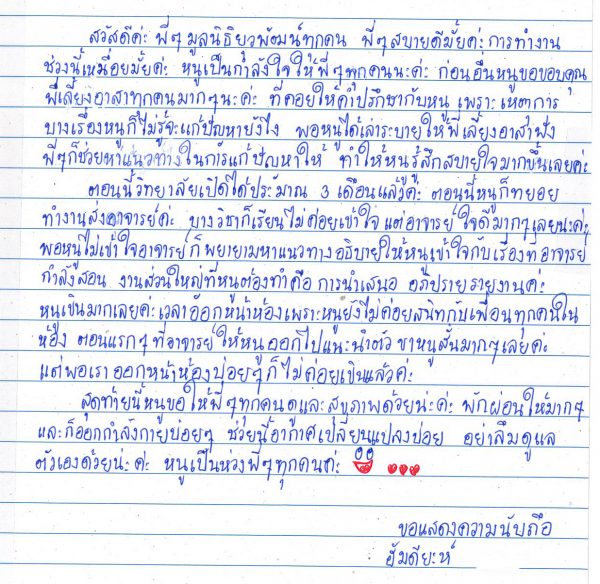 สวัสดีค่ะ พี่ๆมูลนิธิยุวพัฒน์ทุกคน พี่ๆสบายดีมั้ยค่ะการทำงาน
ช่วงนี้เหนื่อยมั้ยค่ะ หนูเป็นกำลังใจให้พี่ๆทุกคนนะค่ะ ก่อนอื่นหนูขอขอบคุณ
พี่เลี้ยงอาสาทุกคนมากๆนะค่ะ ที่คอยให้คำปรึกษากับหนู เพราะเหตุการ
บางเรื่องหนูก็ไม่รู้จะแก้ปัญหายังไง พอหนูได้เล่าระบายให้พี่เลี้ยงอาสาฟัง
พี่ๆก็ช่วยหาแนวทางในการแก้ปัญหาให้ ทำให้หนูรู้สึกสบายใจมากขึ้นเลยค่ะ
ตอนนี้วิทยาลัยเปิดได้ประมาณ 3 เดือนแล้วค่ะ ตอนนี้หนูก็ทยอย
ทำงานส่งอาจารย์ค่ะ บางวิชาก็เรียนไม่ค่อยเข้าใจ แต่อาจารย์ใจดีมากๆเลยนะค่ะ
พอหนูไม่เข้าใจอาจารย์ก็พยายามหาแนวทางอธิบายให้หนูเข้าใจกับเรื่องที่อาจารย์
กำลังสอน งานส่วนใหญ่ที่หนูต้องทำคือ การนำเสนอ อภิปรายรายงานค่ะ
หนูเขินมากเลยค่ะเวลาออกหน้าห้องเพราะหนูยังไม่ค่อยสนิทกับเพื่อนทุกคนใน
ห้อง ตอนแรกๆที่อาจารย์ให้หนูออกไปแนะนำตัว ขาหนูสั่นมากๆเลยค่ะ
แต่พอเราออกหน้าห้องบ่อยๆก็ไม่ค่อยเขินแล้วค่ะ
สุดท้ายนี้หนูขอให้พี่ๆทุกคนดูแลสุขภาพด้วยน่ะค่ะ พักผ่อนให้มากๆ
และก็ออกกำลังกายบ่อยๆ ช่วยนี้อากาศเปลี่ยนแปลงบ่อย อย่าลืมดูแล
ตัวเองด้วยน่ะค่ะ หนูเป็นห่วงพี่ๆทุกคนค่ะ
ขอแสดงความนับถือ
ฮัมดียะห์